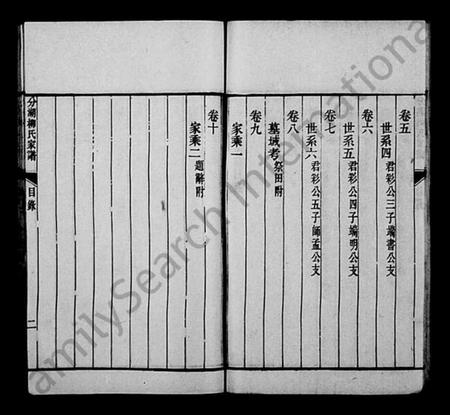 卷五
世系四 君彩公三子端書公支
卷六
世系五 君彩公四子端明公支
卷七
世系六 君彩公五子師孟公支
卷八
墓域考 祭田附
卷九
家乘一
卷十
家乘二 題辭附
分湖柳氏家譜
目錄
二
FamilySearch International